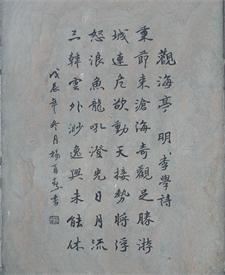 觀海亭 明 李學詩
東節來滄海奇觀足勝游
城連危欲動天接勢將浮
怒浪魚龍吼澄光日月流
三韓雲外渺逸興未能休
戊辰年冬月楊百
書